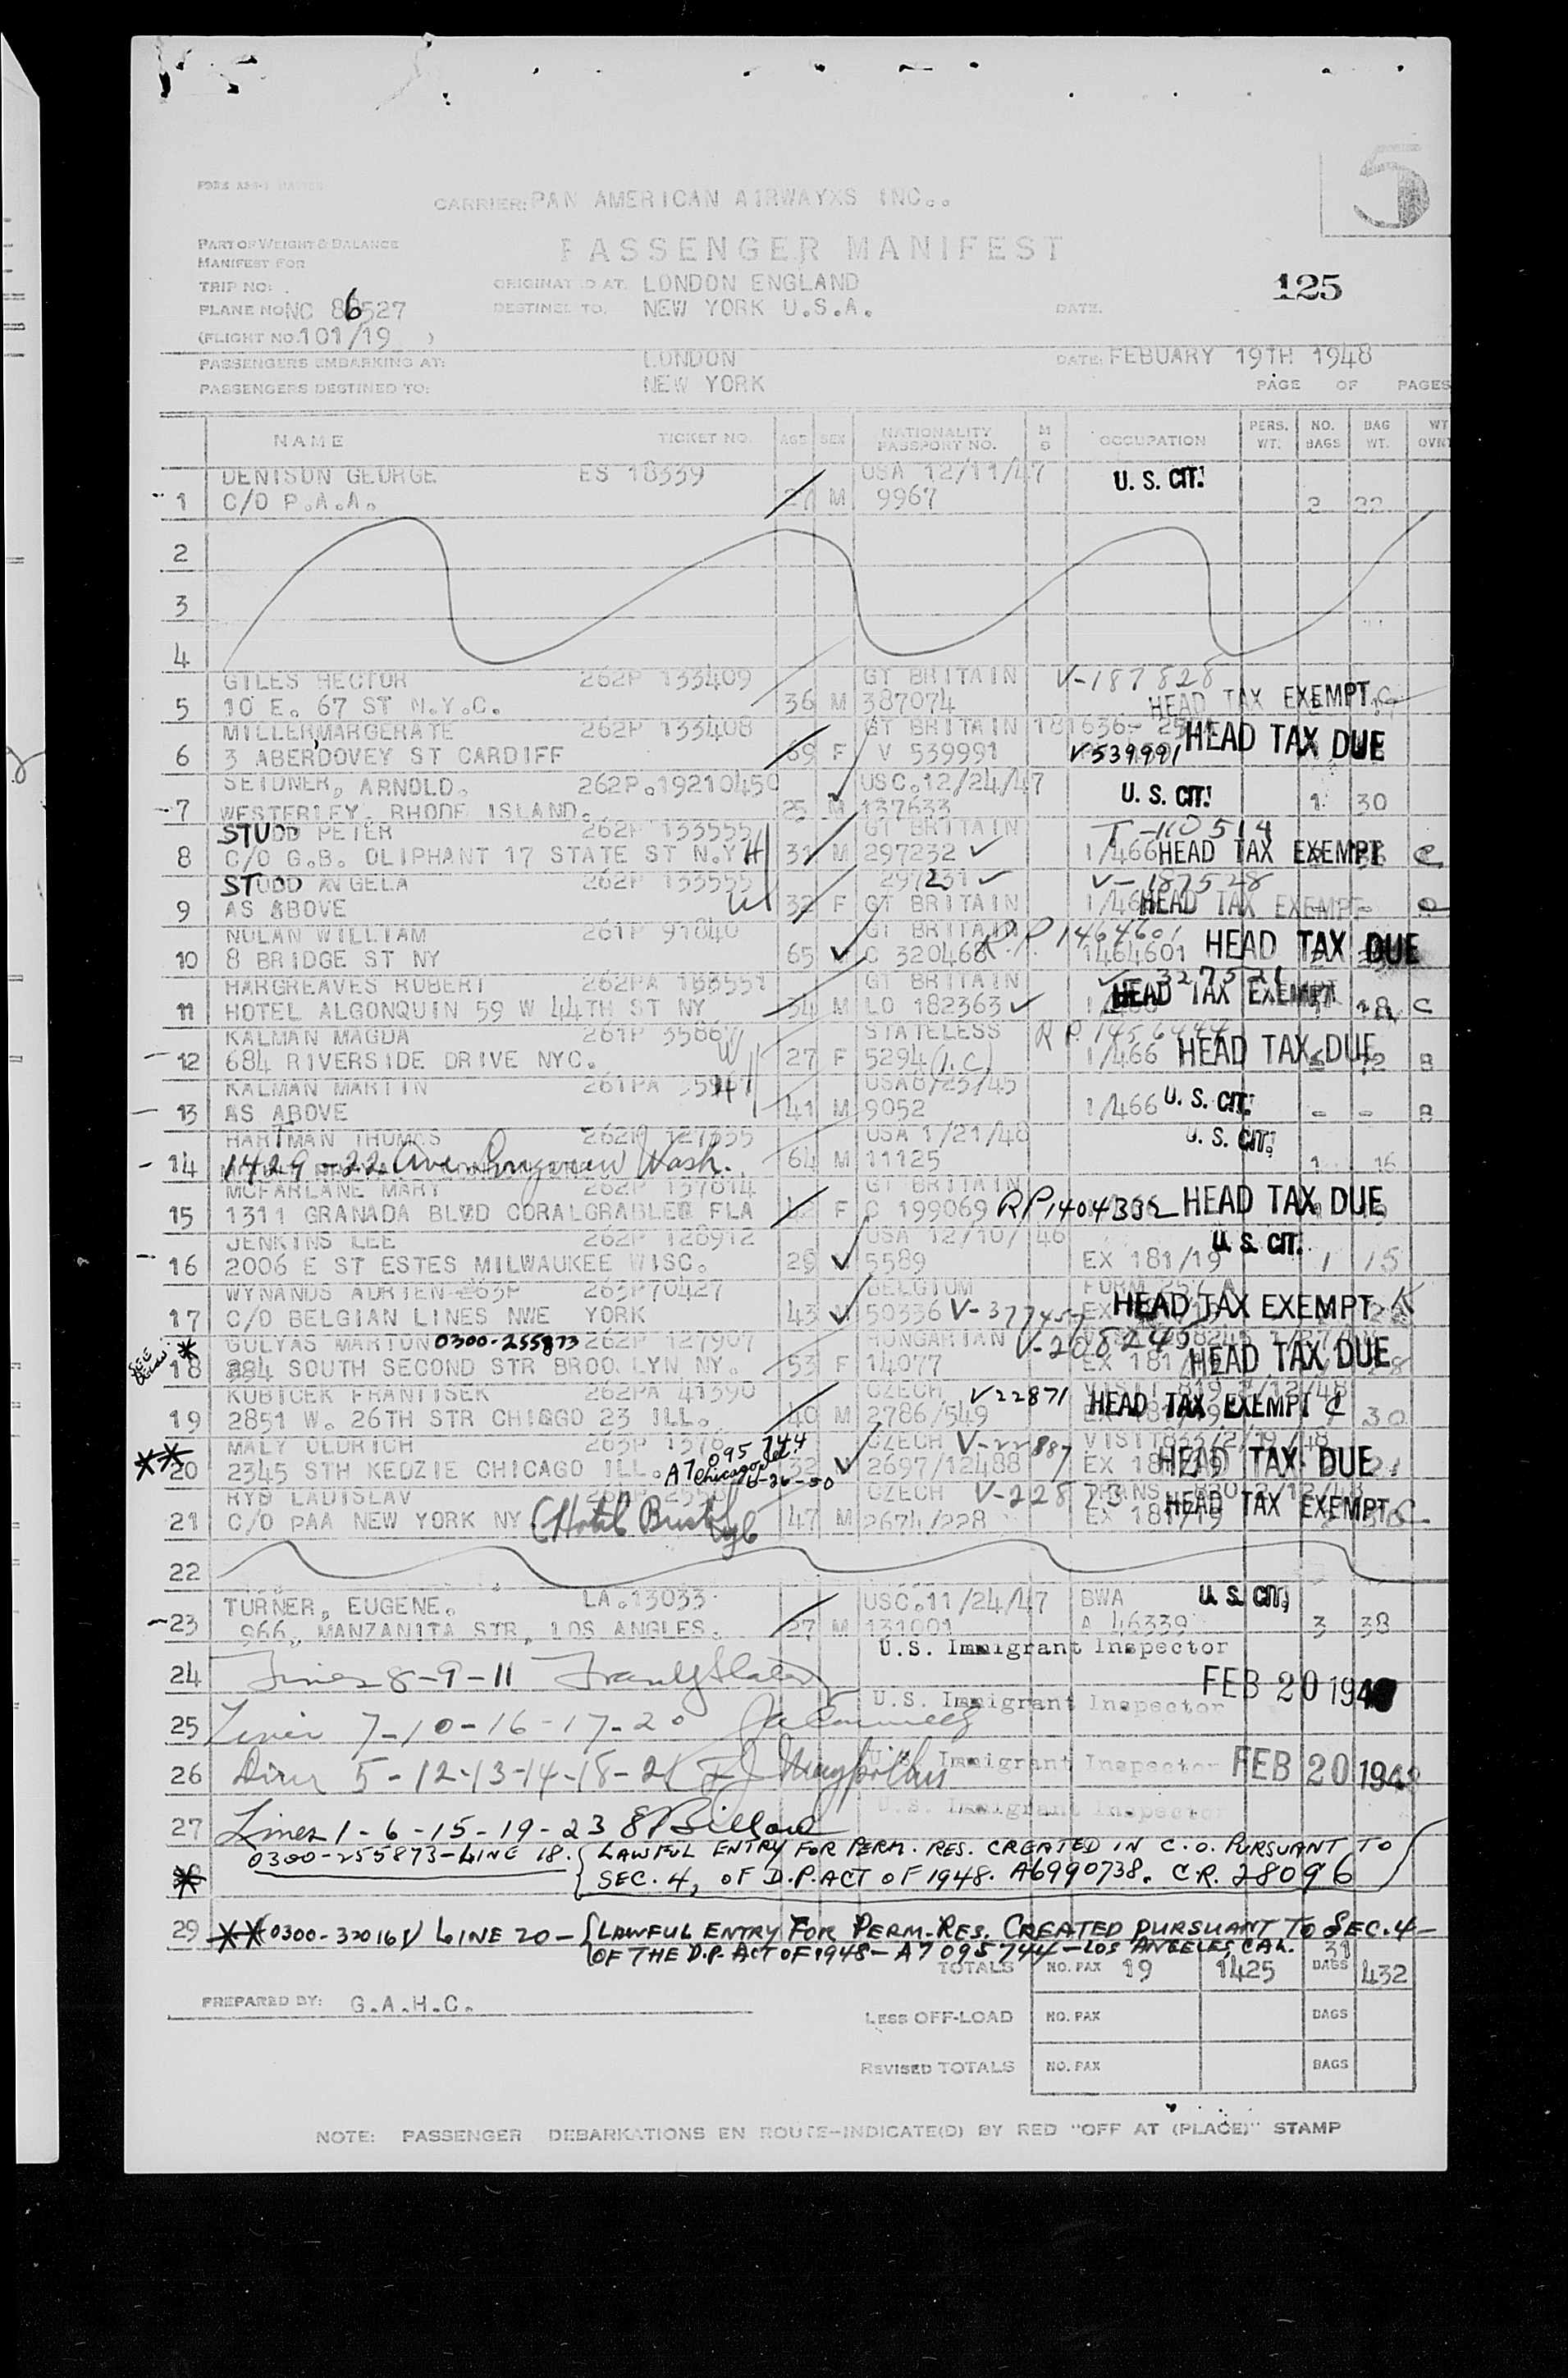 5
CARRIER: PAN AMERICAN AIRWAYXS INC..
PART OF WEIGHT & BALANCE
MANIFEST FOR
PASSENGER MANIFEST
TRIP NO: .
ORIGINATED AT. LONDON ENGLAND
125
PLANE NO NC 86527
DESTINED TO. NEW YORK U.S.A.
DATE.
(FLIGHT NO. 101/19 )
PASSENGERS EMBARKING AT: LONDON
DATE: FEBUARY 19TH 1948
PASSENGERS DESTINED TO: NEW YORK
PAGE OF PAGES
NAME TICKET NO. AGE SEX NATIONALITY PASSPORT NO. M S OCCUPATION PERS. WT. NO. BAGS BAG WT. WT OVNT
DENISON GEORGE ES 18339 USA 12/11/47 U. S. CIT.
1 C/O P.A.A. 27 M 9967 2 22
2
3
4
GILES HECTOR 262P 133409 GT BRITAIN V-187828
5 10 E. 67 ST N.Y.C. 36 M 387074 HEAD TAX EXEMPT C
MILLER,MARGERATE 262P 133408 GT BRITAIN 181636-
6 3 ABERDOVEY ST CARDIFF 69 F V 539991 V539991 HEAD TAX DUE
SEIDNER, ARNOLD. 262P.19210450 USC.12/24/47
7 WESTERLEY. RHODE ISLAND. 25 M 137633 U. S. CIT. 1 30
STUDD PETER 262P 133555 GT BRITAIN T-110514
8 C/O G.B. OLIPHANT 17 STATE ST N.Y H 31 M 297232 1/466 HEAD TAX EXEMPT C
STUDD ANGELA 262P 133555 297231 V-187528
9 AS ABOVE W 32 F GT BRITAIN HEAD TAX EXEMPT
NOLAN WILLIAM 261P 91840 GT BRITAIN R.P. 1464601
10 8 BRIDGE ST NY 65 C 320468 1464601 HEAD TAX DUE
HARGREAVES ROBERT 262PA 133551 GT BRITAIN V-327521
11 HOTEL ALGONQUIN 59 W 44TH ST NY 34 M LO 182363 HEAD TAX EXEMPT 18 C
KALMAN MAGDA 261P STATELESS R.P. 1456444
12 684 RIVERSIDE DRIVE NYC. W 27 F 5294 (I.C) 1/466 HEAD TAX DUE B
KALMAN MARTIN 261PA USA 8/23/45
13 AS ABOVE H 41 M 9052 1/466 U. S. CIT. - - B
HARTMAN THOMAS 262P 127335 USA 1/21/48 U. S. CIT.
14 1429-22 Ave Wash. 64 M 11125 1 16
MCFARLANE MARY 262P 137614 GT BRITAIN
15 1311 GRANADA BLVD CORALGRABLED FLA F C 199069 RP1404332 HEAD TAX DUE
JENKINS LEE 262P 128912 USA 12/10/ 46 U. S. CIT.
16 2006 E ST ESTES MILWAUKEE WISC. 29 5589 EX 181/19 1 15
WYNANDS ADRIEN 263P 263P70427 BELGIUM FORM 257 A
17 C/O BELGIAN LINES NWE YORK 43 M 50336 V-377457 HEAD TAX EXEMPT
SEE BELOW * GULYAS MARTON 0300-255873 262P 127907 HUNGARIAN V-208245
18 384 SOUTH SECOND STR BROOLYN NY. 53 F 14077 EX 181 HEAD TAX DUE
KUBICEK FRANTISEK 262PA 41390 CZECH V22871
19 2851 W. 26TH STR CHIGGO 23 ILL. 40 M 2786/549 HEAD TAX EXEMPT C 30
MALY OLDRICH 263P 1376 CZECH V-22887 VISIT833/2/19/48
**20 2345 STH KEDZIE CHICAGO ILL. A7 095 744 Chicago 6-26-50 32 2697/12488 EX 181/19 HEAD TAX DUE
RYB LADISLAV CZECH V-22873
21 C/O PAA NEW YORK NY (Hotel 47 M 2674/228 EX 181/19 HEAD TAX EXEMPT C
22
TURNER, EUGENE. LA.13033 USC.11/24/47 BWA U. S. CIT.
23 966, MANZANITA STR, LOS ANGLES. 27 M 131001 A 46339 3 38
U.S. Immigrant Inspector
24 Lines 8-9-11 FEB 20 1948
U.S. Immigrant Inspector
25 Lines 7-10-16-17-20
26 Lines 5-12-13-14-18-21 U.S. Immigrant Inspector FEB 20 1948
U.S. Immigrant Inspector
27 Lines 1-6-15-19-23
0300-255873-LINE 18. { LAWFUL ENTRY FOR PERM. RES. CREATED IN C.O. PURSUANT TO
* SEC. 4, OF D.P. ACT OF 1948. A6990738. C.R. 28096
29 ** 0300-320161 LINE 20-{LAWFUL ENTRY FOR PERM. RES. CREATED PURSUANT TO SEC. 4-
OF THE D.P. ACT OF 1948-A7 095744-LOS ANGELES, CAL.
TOTALS NO. PAX 19 1425 31 BAGS 432
PREPARED BY: G.A.H.C.
LESS OFF-LOAD NO. PAX BAGS
REVISED TOTALS NO. PAX BAGS
NOTE: PASSENGER DEBARKATIONS EN ROUTE-INDICATE(D) BY RED "OFF AT (PLACE)" STAMP